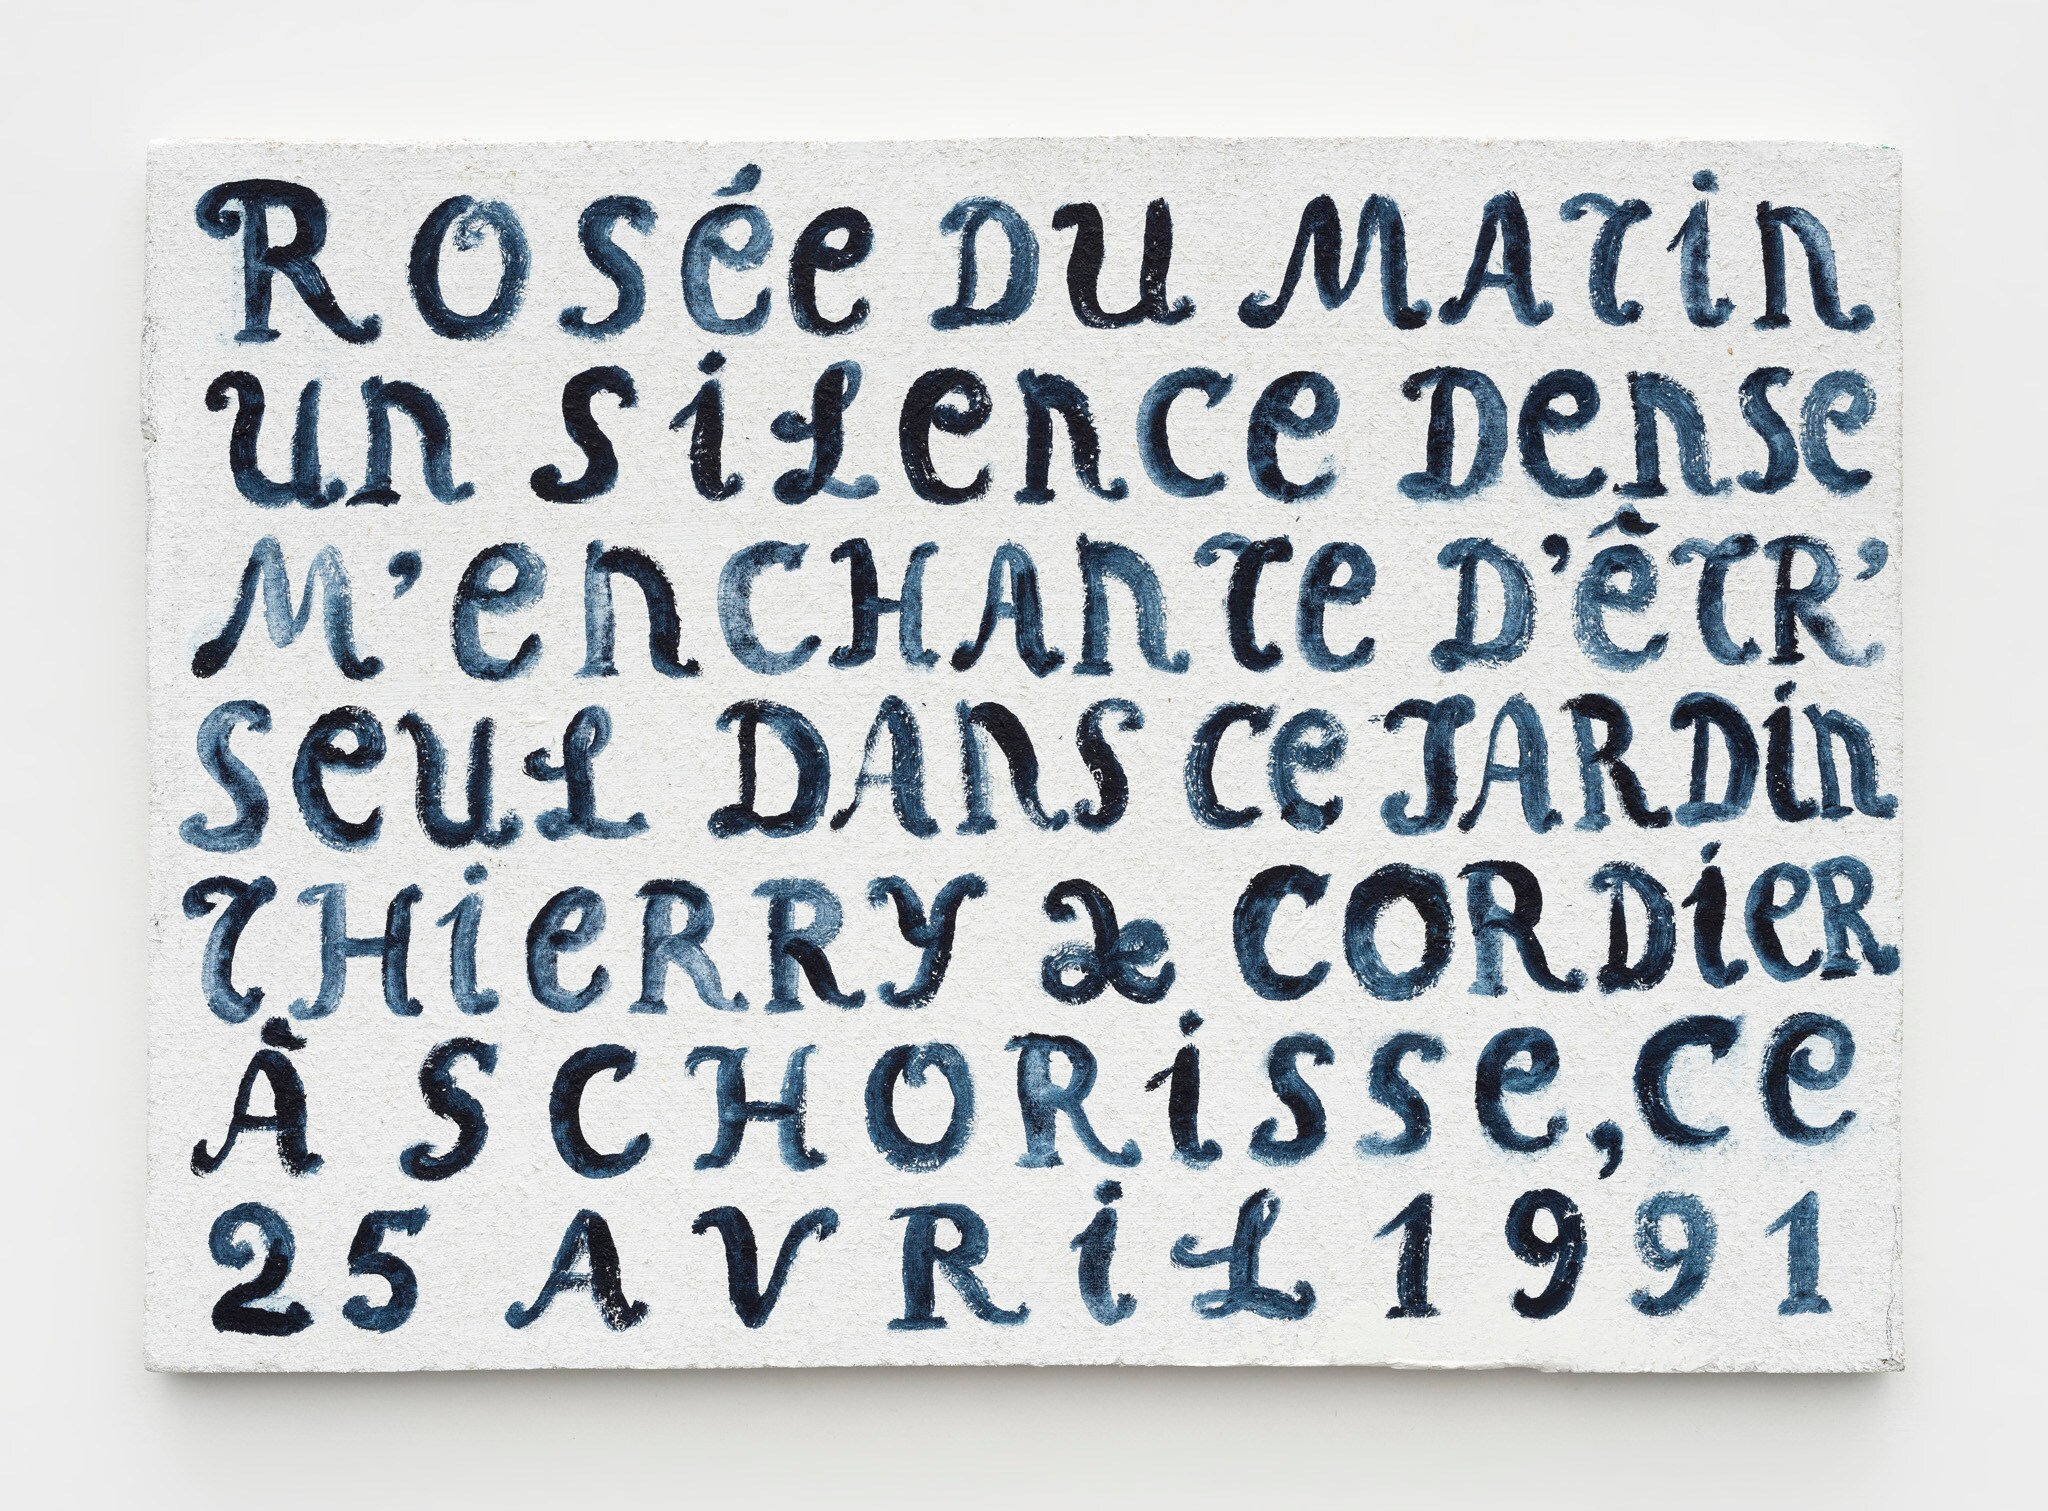 ROSée DU MATin
Un SiLenCe Dense
M'enCHAnTe D'êTR'
SeUL DAnS Ce JARDin
THieRRY De CORDieR
À SCHORiSSe, Ce
25 AVRiL 1991